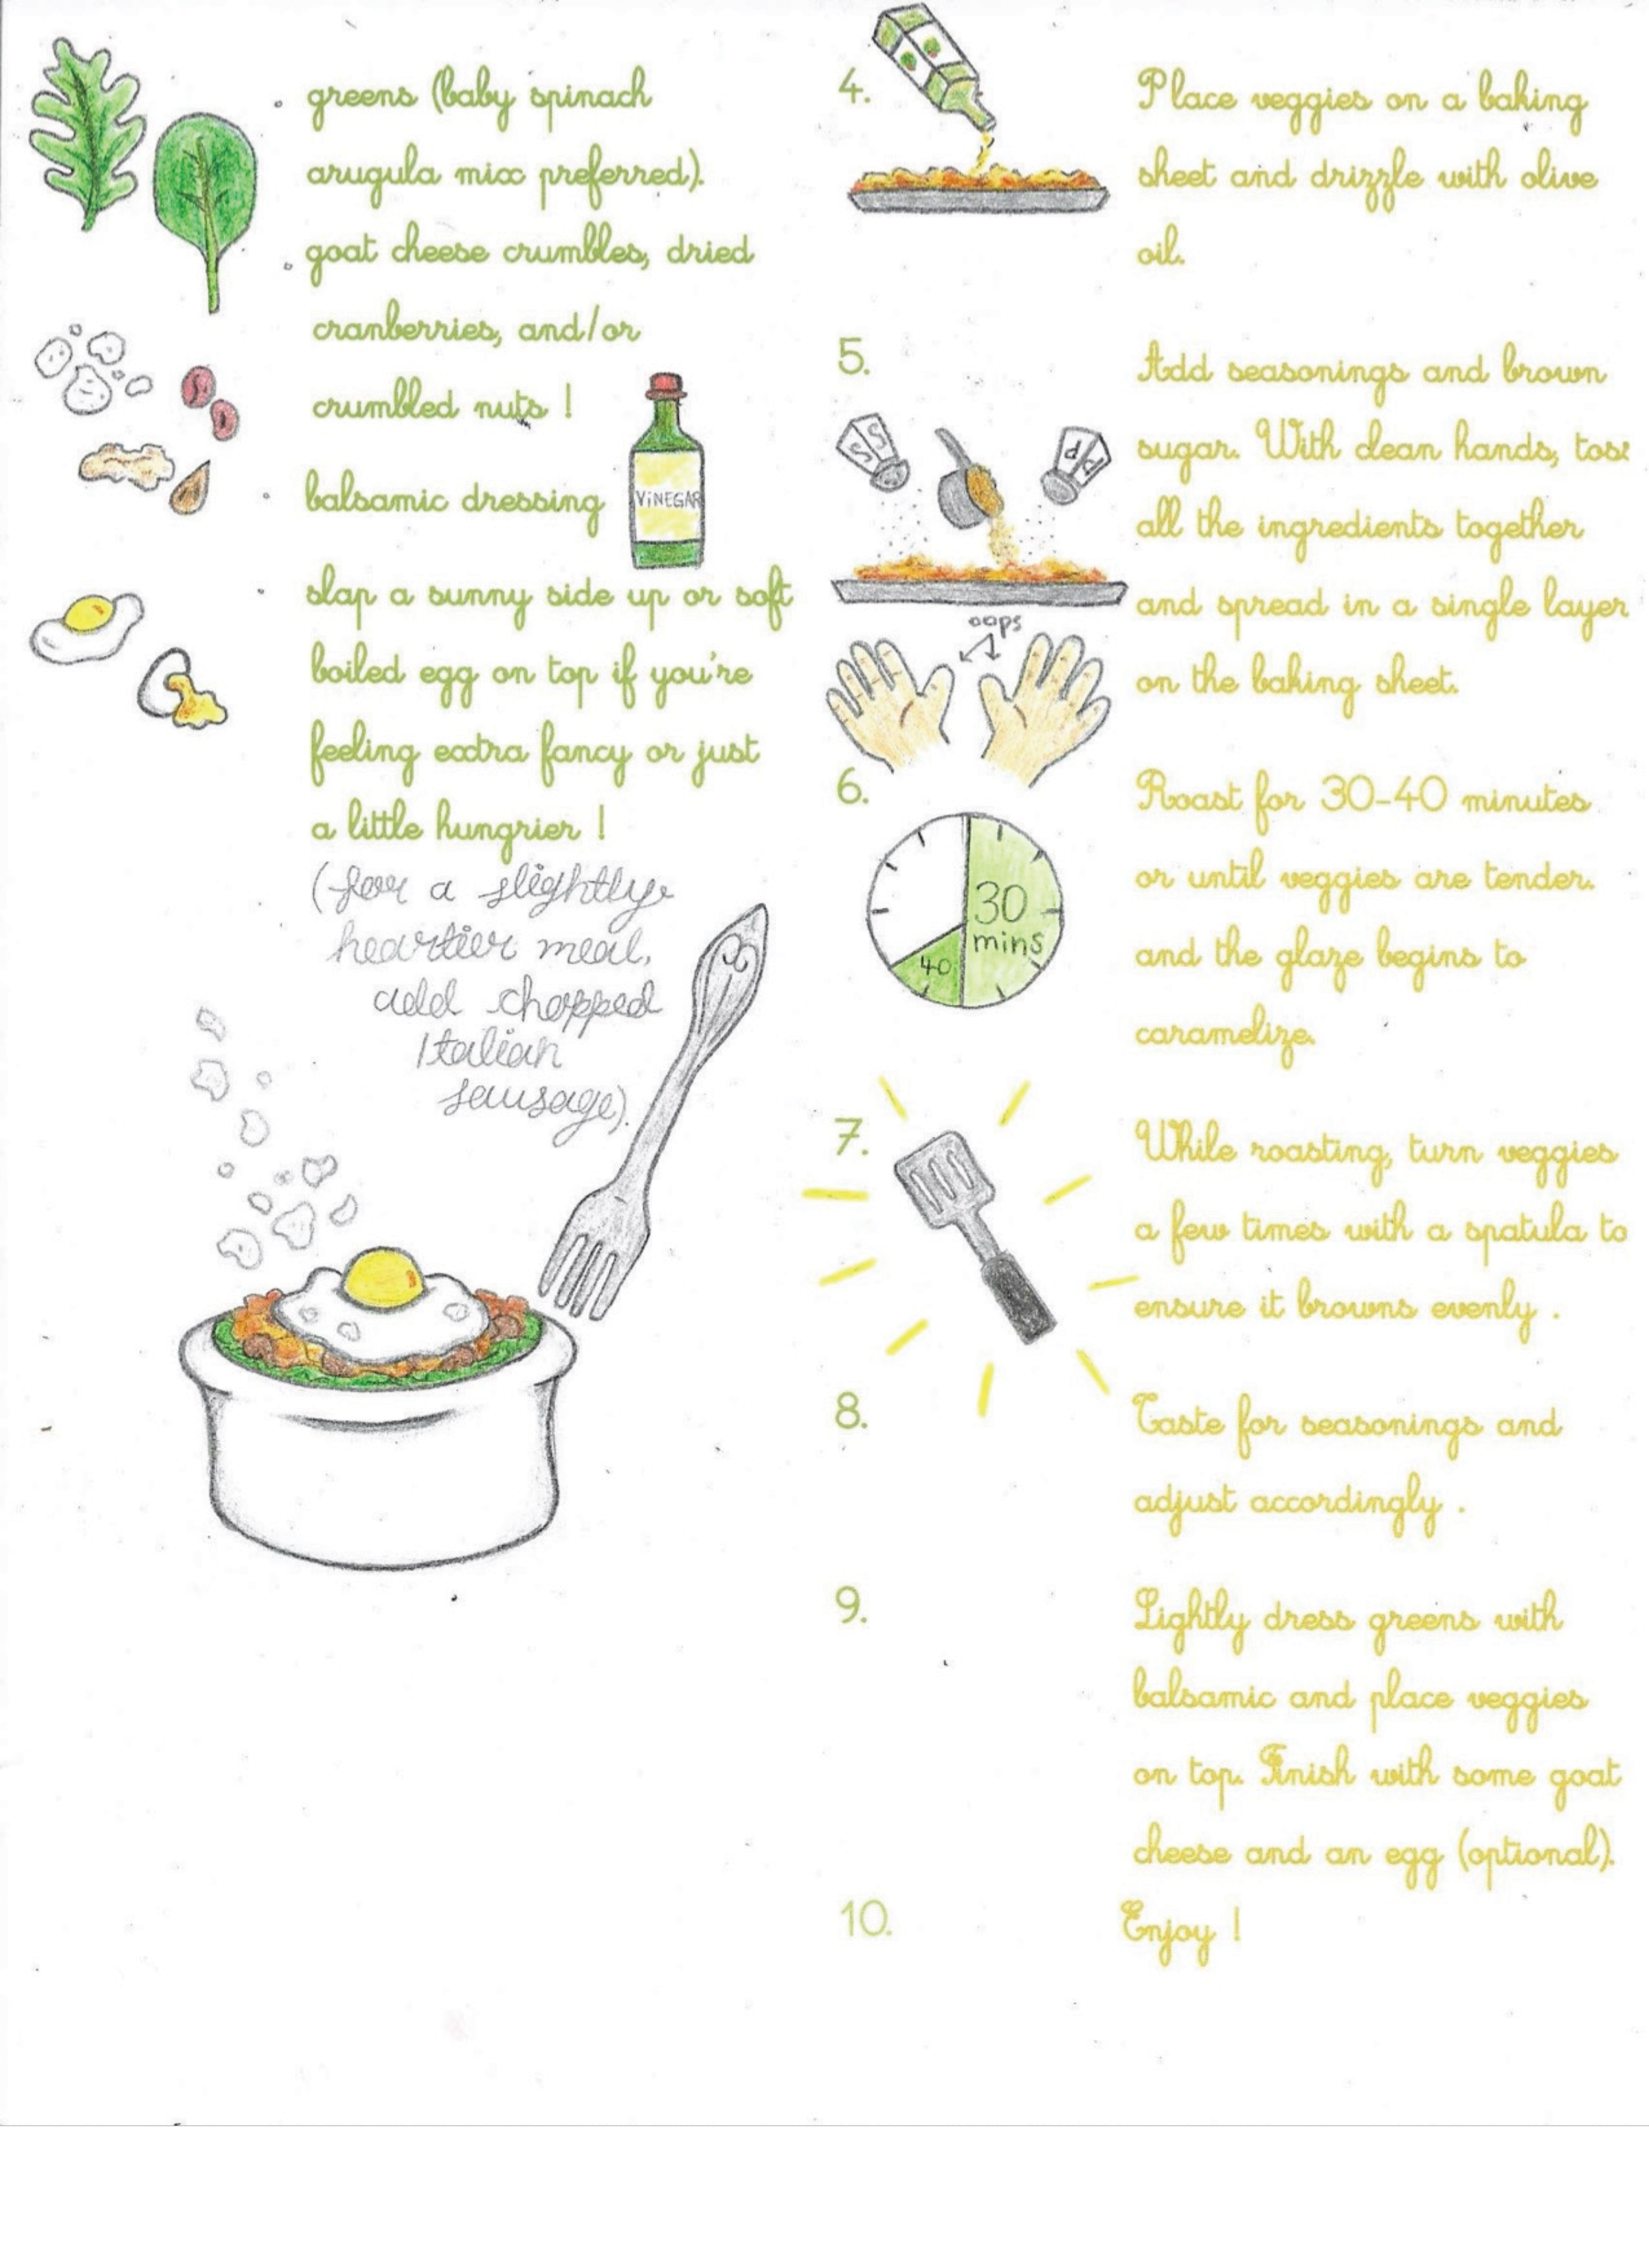 greens (baby spinach
arugula mix preferred).
goat cheese crumbles, dried
cranberries, and/or
crumbled nuts !
balsamic dressing
VINEGAR
slap a sunny side up or soft
boiled egg on top if you're
feeling extra fancy or just
a little hungrier !
(for a slightly
heartier meal,
add chopped
Italian
sausage).
4.
Place veggies on a baking
sheet and drizzle with olive
oil.
5.
S S
P P
Add seasonings and brown
sugar. With clean hands, toss
all the ingredients together
and spread in a single layer
on the baking sheet.
oops
6.
30
mins
40
Roast for 30-40 minutes
or until veggies are tender.
and the glaze begins to
caramelize.
7.
While roasting, turn veggies
a few times with a spatula to
ensure it browns evenly .
8.
Taste for seasonings and
adjust accordingly .
9.
Lightly dress greens with
balsamic and place veggies
on top. Finish with some goat
cheese and an egg (optional).
10.
Enjoy !